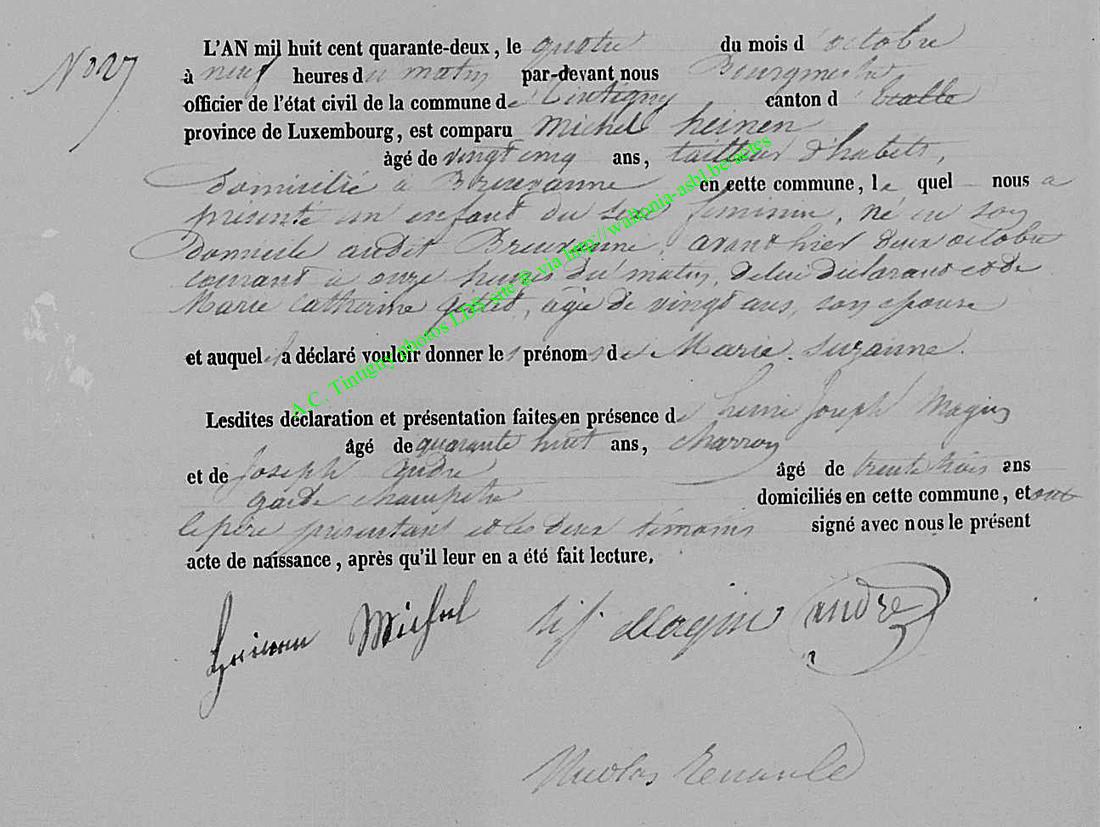 No 27
L'AN mil huit cent quarante-deux, le quatre du mois d'octobre
à neuf heures du matin par-devant nous Bourgmestre
officier de l'état civil de la commune de Tintigny canton d
province de Luxembourg, est comparu Michel heinen
âgé de vingt cinq ans, tailleur d'habits,
domicilié à Breuvanne en cette commune, le quel nous a
présenté un enfant du sexe féminin, né en son
domicile audit Breuvanne, avant hier deux octobre
courant à onze heures du matin, de lui déclarant et de
Marie Catherine, âgée de vingt ans, son épouse
et auquel il a déclaré vouloir donner les prénoms de Marie. Suzanne.
Lesdites déclaration et présentation faites en présence de henri Joseph Magin
âgé de quarante huit ans, charron
et de Joseph andre âgé de trente trois ans
garde champetre domiciliés en cette commune, et ont
le père présentant et les deux témoins signé avec nous le présent
acte de naissance, après qu'il leur en a été fait lecture.
Heinen Michel hj Magin andre
Nicolas
A.C. Tintigny photos LDS site @ via http://wallonia-asbl.be/actes